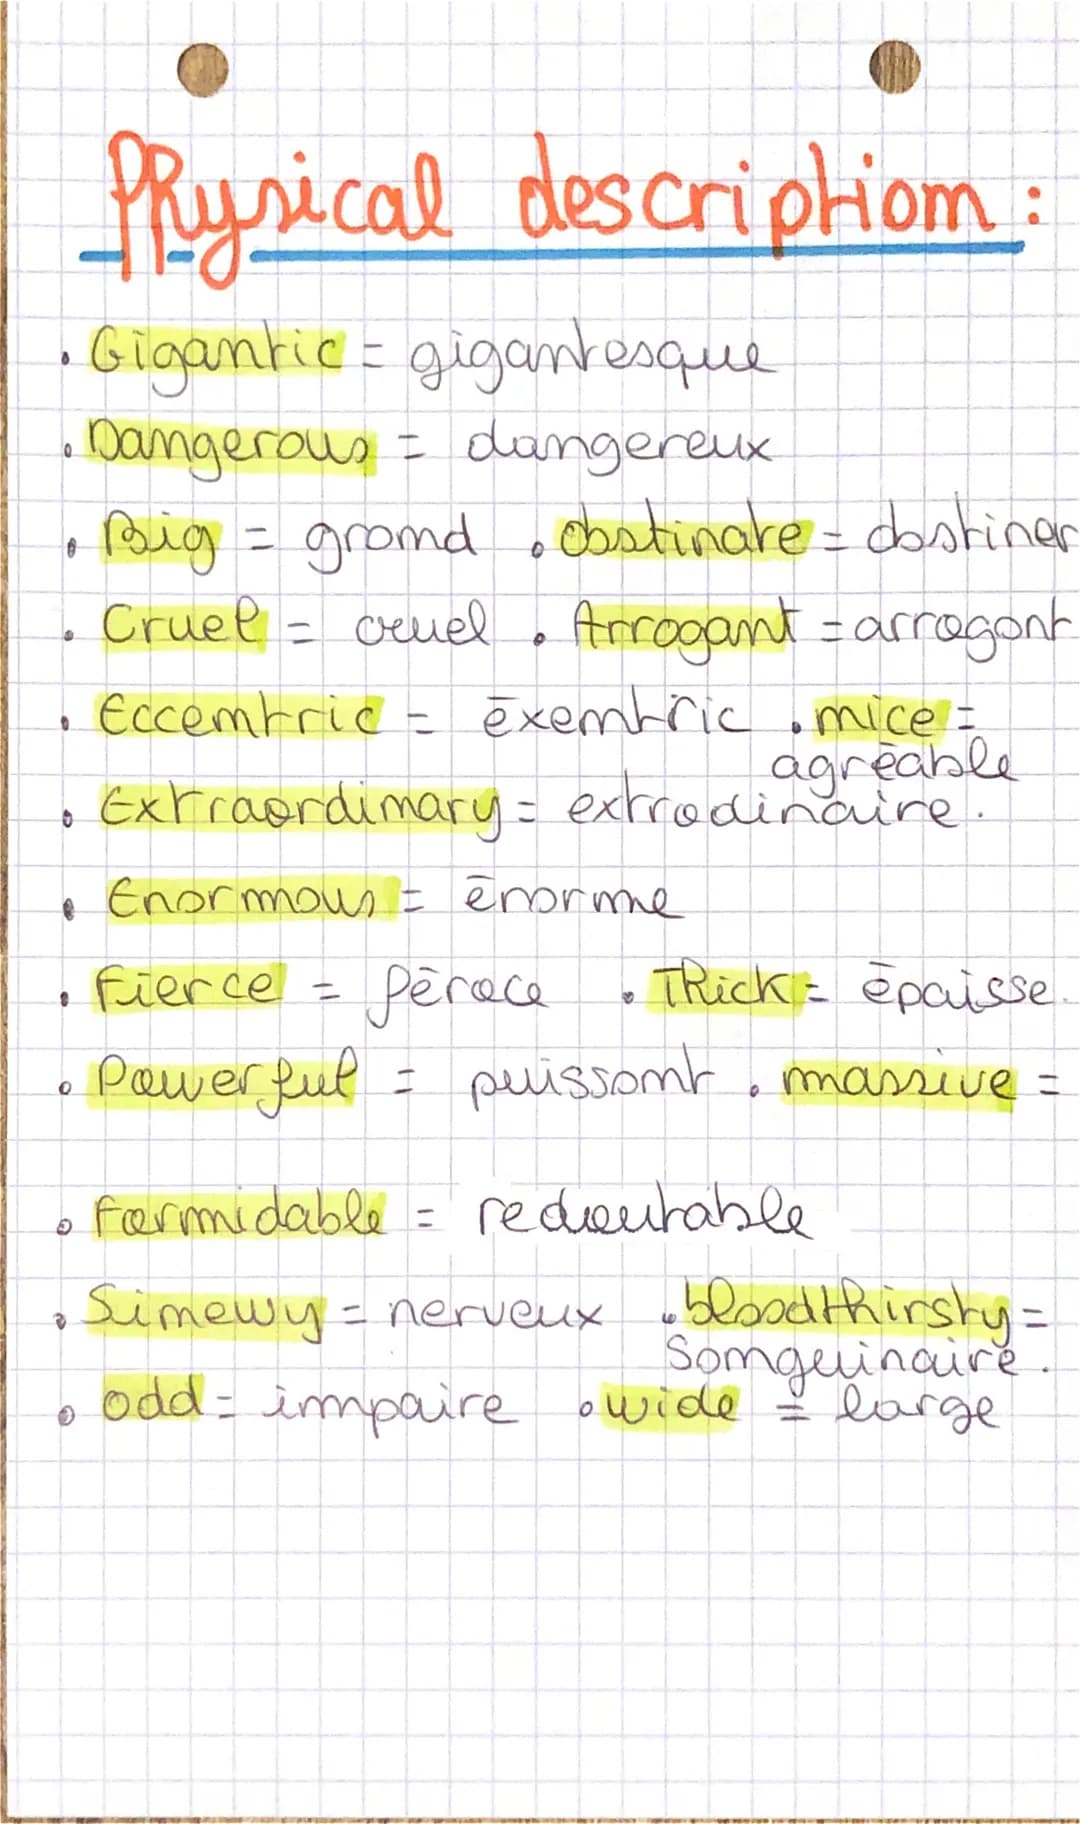 Physical description :
. Gigantic = gigantesque
. Dangerous = dangereux
. Big = grand . obstinate = obstiner
. Cruel = cruel . Arrogant = arrogant
. Eccentric = éxentric . nice =
agréable
. Extraordinary = extrodinaire.
. Enormous = énorme
. Fierce = féroce . Thick = épaisse.
. Powerful = puissant . massive =
. Formidable = redoutable
. Sinewy = nerveux . bloodthirsty =
Sanguinaire.
. odd = impaire . wide = large